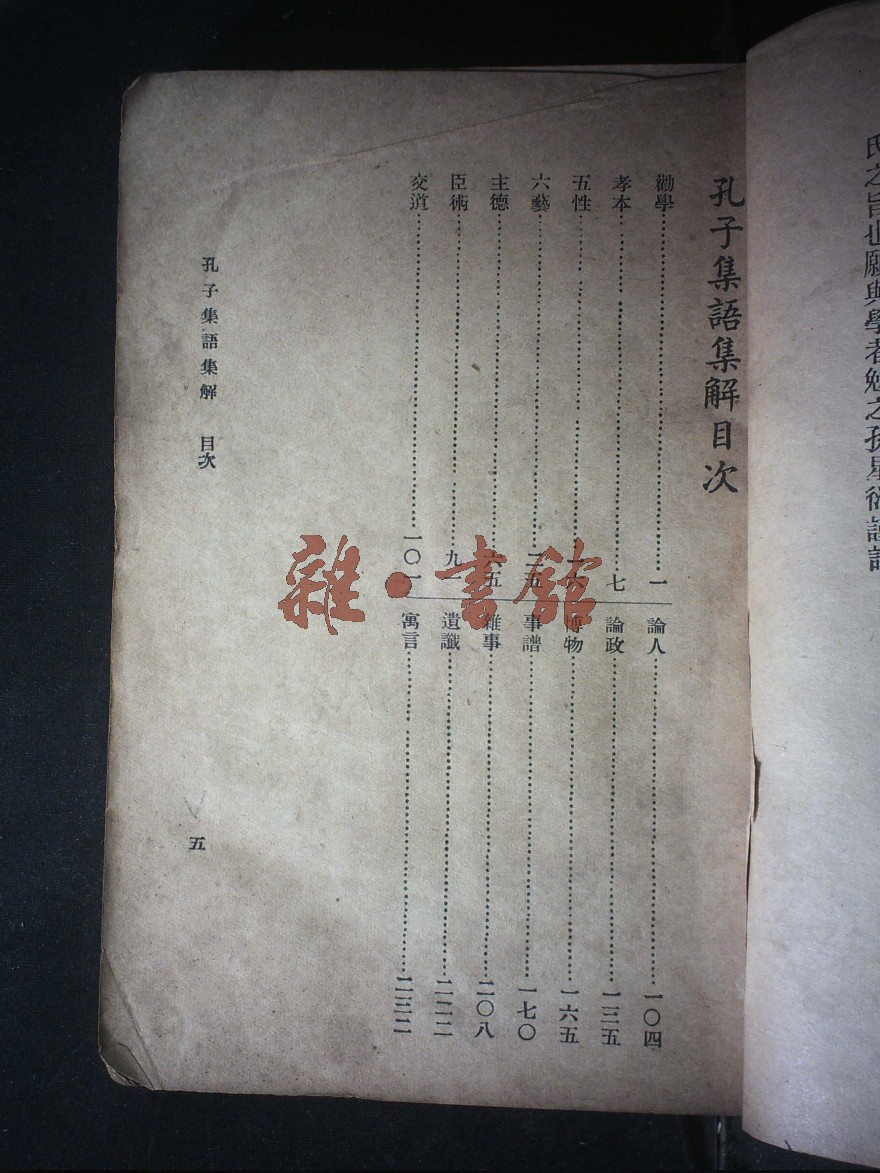 氏之旨也願與學者勉之孫星衍謹記
孔子集語集解目次
勸學……一
孝本……七
五性……一六
六藝……二五
主德……六五
臣術……九一
交道……一〇一
論人……一〇四
論政……一三五
博物……一六五
事譜……一七〇
雜事……二〇八
遺讖……二二二
寓言……二三二
孔子集語集解 目次
五
雜·書館